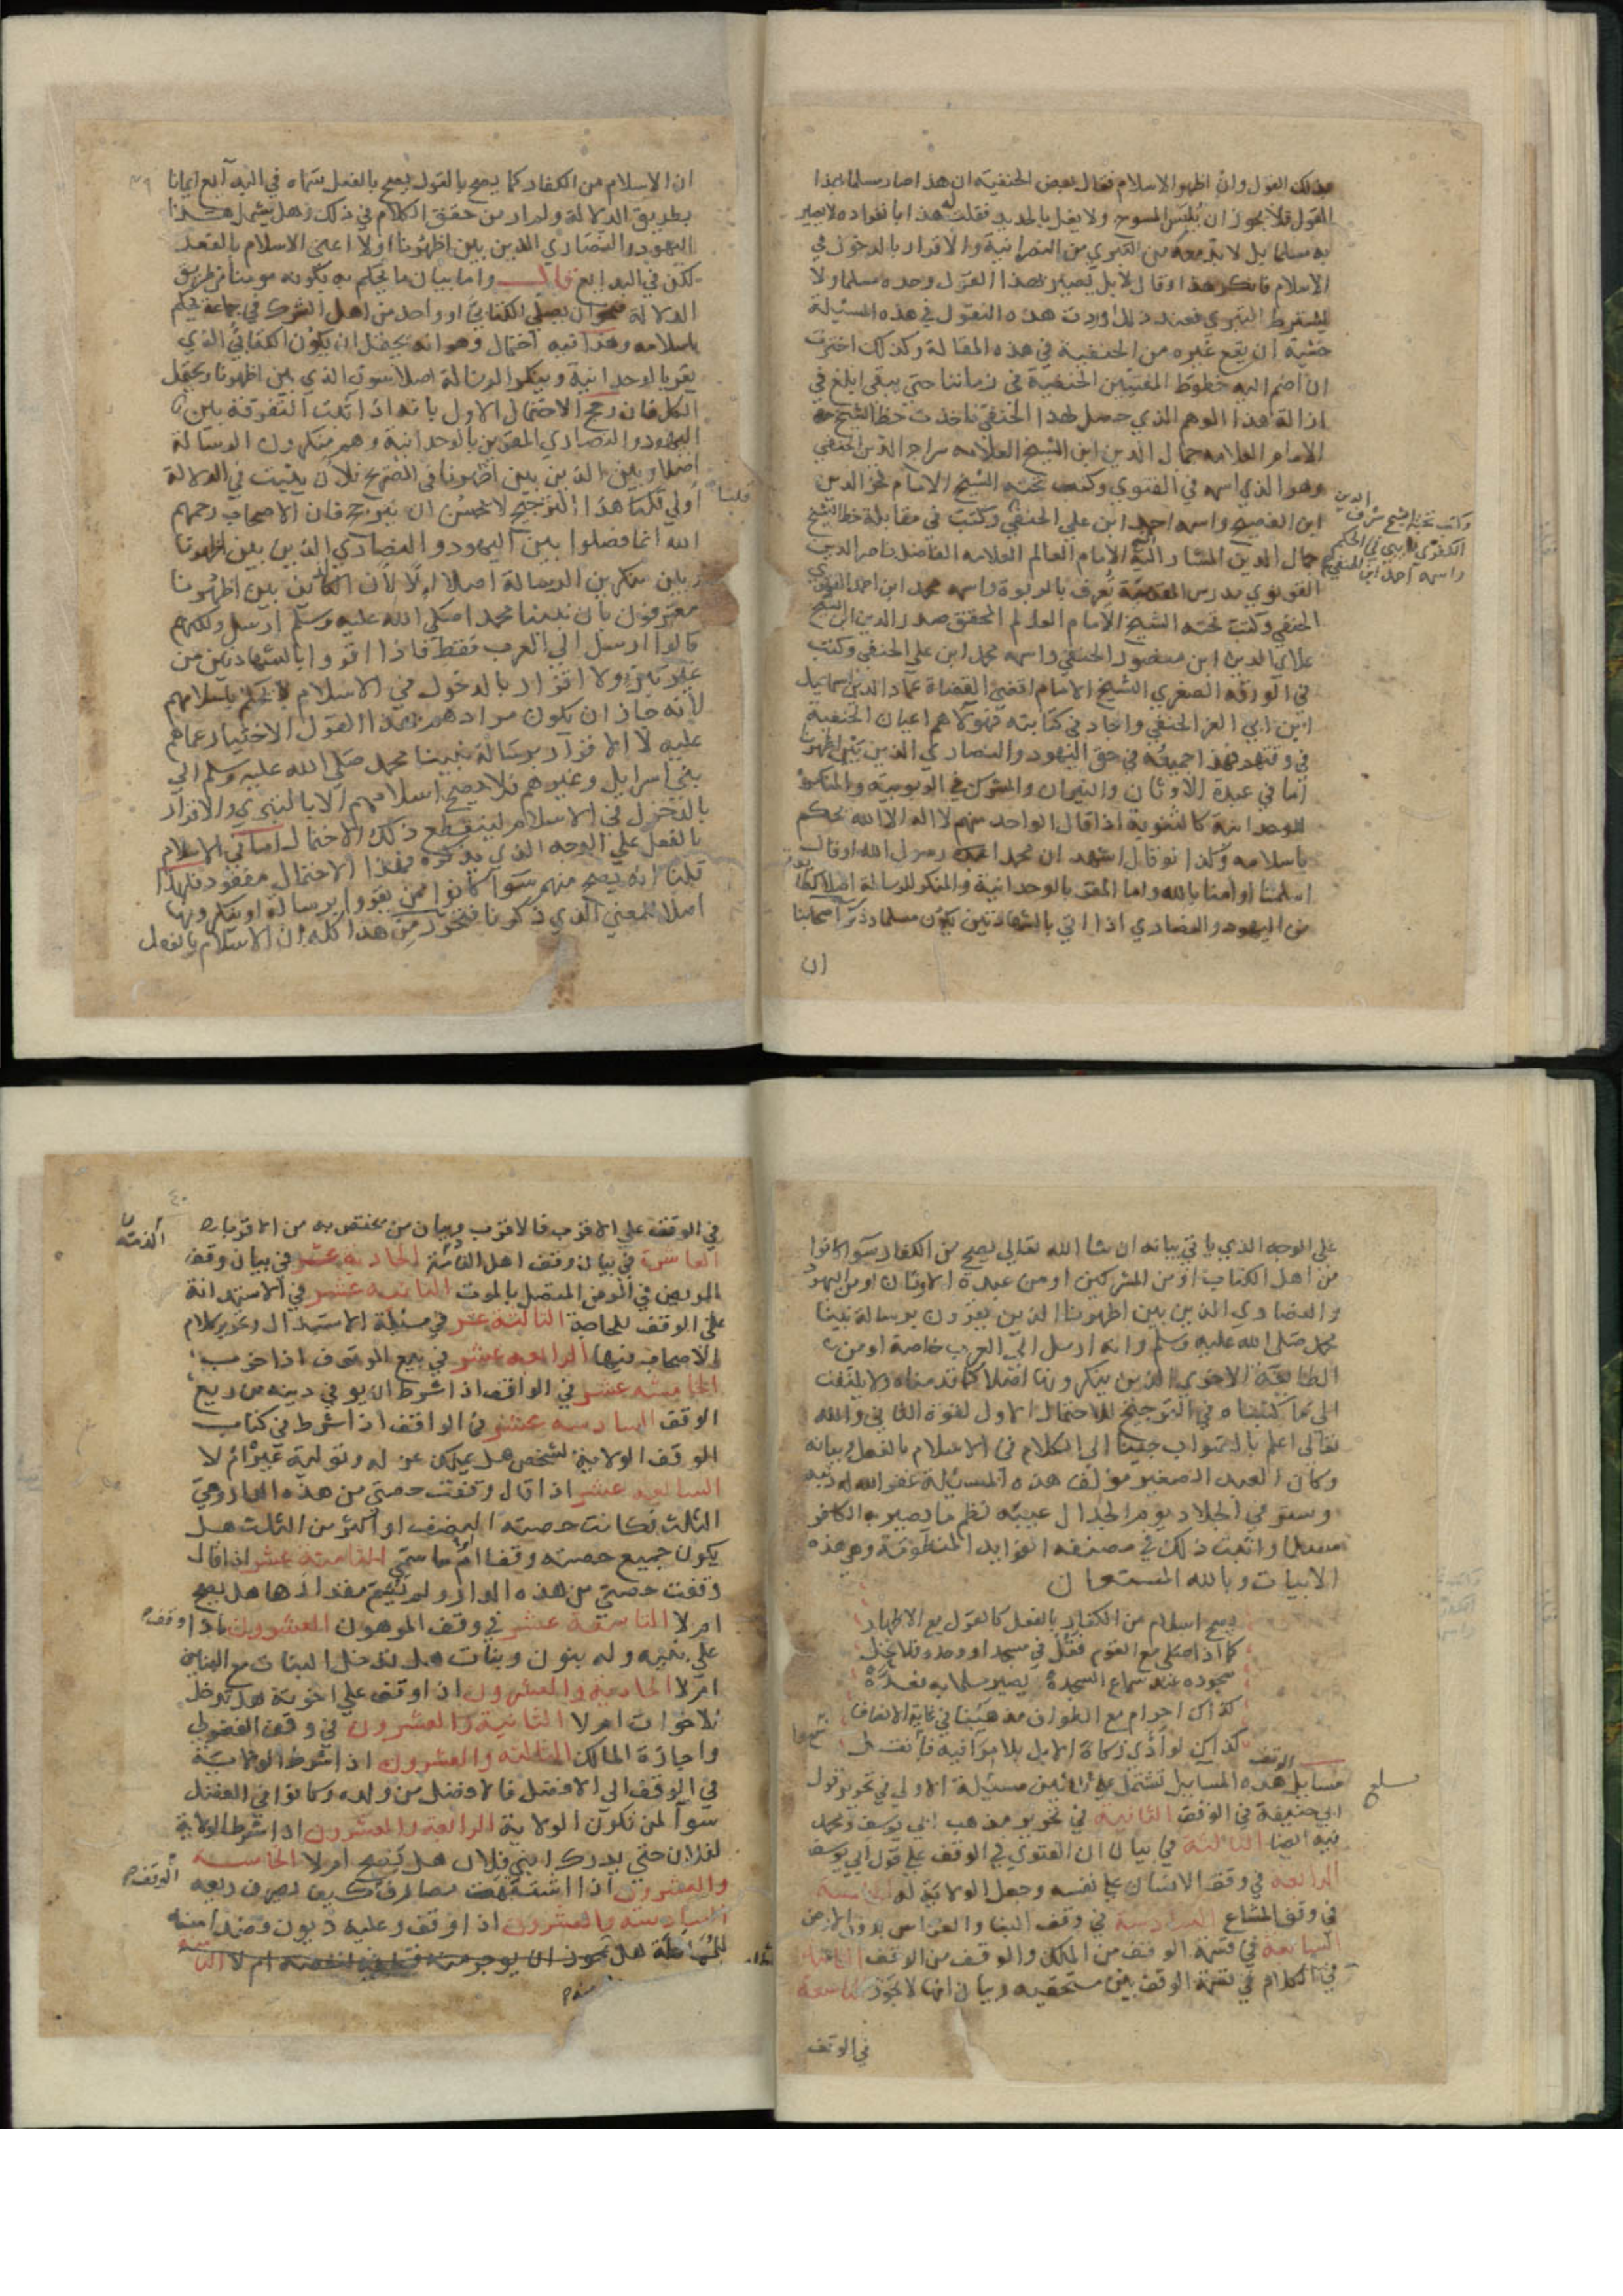 بذلك القول وان اظهر الاسلام فقال بعض الحنفية ان هذا صار مسلما بهذا
القول فلا يجوز ان يلبس المسوح ولا يغل بالحديد فقلت له هذا بانفراده لا يصير
به مسلما بل لا بد معه من التبري من النصرانية والاقرار بالدخول في
الاسلام فانكر هذا وقال لا بل يصير بهذا القول وحده مسلما ولا
يشترط التبري فعند ذلك اوردت هذه النقول في هذه المسئلة
خشية ان يقع غيره من الحنفية في هذه المقالة وكذلك اخترت
ان اضم اليه خطوط المفتيين الحنفية في زماننا حتى يبقى ابلغ في
ازالة هذا الوهم الذي حصل لهذا الحنفي فاخذت خط الشيخ
الامام العلامه جمال الدين ابن الشيخ العلامه سراج الدين الحنفي
وهو الذي اسمه في الفتوي وكتب تحته الشيخ الامام فخر الدين
ابن الفصيح واسمه احمد ابن علي الحنفي وكتب في مقابلة خط الشيخ
وكتب تحته الشيخ شرف الدين
الكفري نايبي في الحكم
واسمه احمد ابن الحنفي
جمال الدين المشار اليه الامام العالم العلامه الفاضل ناصر الدين
القونوي مدرس المقدمية يعرف بالربوة واسمه محمد ابن احمد القونوي
الحنفي وكتب تحته الشيخ الامام العالم المحقق صدر الدين ابن الشيخ
علاي الدين ابن منصور الحنفي واسمه محمد ابن علي الحنفي وكتب
في الورقه الصغري الشيخ الامام اقضى القضاة عماد الدين اسماعيل
ابن ابي العز الحنفي واجاد في كتابته فهولا هم اعيان الحنفية
في وقتهم فهذا جميعه في حق اليهود والنصاري الذين بين اظهرنا
اما في عبدة الاوثان والنيران والمشرك في الربوبية والمنكر
للوحدانية كالثنوية اذا قال الواحد منهم لا اله الا الله يحكم
باسلامه وكذا لو قال اشهد ان محمدا رسول الله او قال
اسلمنا او امنا بالله واما المقر بالوحدانية والمنكر للرسالة اصلا كقوم
من اليهود والنصاري اذا اتي بالشهادتين يكون مسلما وذكر اصحابنا
ان
ان الاسلام من الكفار كما يصح بالقول يصح بالفعل سماه في البدايع ايمانا
بطريق الدلالة ولم ار من حقق الكلام في ذلك وهل يشمل هذا
اليهود والنصاري الذين بين اظهرنا اولا اعني الاسلام بالفعل
لكن في البدايع قال واما بيان ما يحكم به بكونه مومنا من طريق
الدلالة فنحو ان يصلي الكتابي او واحد من اهل الشرك في جماعة يحكم
باسلامه وهذا فيه احتمال وهو انه يحتمل ان يكون الكتابي الذي
يقر بالوحدانية وينكر الرسالة اصلا سوي الذي بين اظهرنا ويحتمل
الكل فان رجح الاحتمال الاول بانه اذا اثبت التفرقة بين
اليهود والنصاري المقرين بالوحدانية وهم منكرون الرسالة
اصلا وبين الذين بين اظهرنا في الصريح فلان يثبت في الدلالة
اولي قلنا هذا الترجيح لا يحسن ان يترجح فان الاصحاب رحمهم
قلنا
الله انما فصلوا بين اليهود والنصاري الذين بين اظهرنا
وبين منكرين الرسالة اصلا اولا لان الكاين بين اظهرنا
معترفون بان نبينا محمدا صلى الله عليه وسلم ارسل ولكنهم
قالوا ارسل الي العرب فقط فاذا اقروا بالشهادتين من
غير تبري ولا اقرار بالدخول في الاسلام لا يحكم باسلامهم
لانه جاز ان يكون مرادهم بهذا القول الاخبار عما هم
عليه لا الاقرار برسالة نبينا محمد صلى الله عليه وسلم الي
بني اسرايل وغيرهم فلا يصح اسلامهم الا بالتبري والاقرار
بالدخول في الاسلام لينقطع ذلك الاحتمال اما في الاسلام
بالفعل علي الوجه الذي نذكره فهذا الاحتمال مفقود فلهذا
قلنا انه يصح منهم سوا كانوا ممن يقروا برسالة او ينكرونها
اصلا للمعني الذي ذكرنا فتحرر من هذا كله ان الاسلام بالفعل
علي الوجه الذي ياتي بيانه ان شا الله تعالي يصح من الكفار سوا كانوا
من اهل الكتاب او من المشركين او من عبدة الاوثان او من اليهود
والنصاري الذين بين اظهرنا الذين يقرون برسالة نبينا
محمد صلى الله عليه وسلم وانه ارسل الي العرب خاصة او من
الطايفة الاخري الذين ينكرونها اصلا كما قدمناه ولا يلتفت
الي ما كتبناه في الترجيح للاحتمال الاول لقوة الثاني والله
تعالي اعلم بالصواب جينا الي الكلام في الاسلام بالفعل وبيانه
وكان العبد الصغير مولف هذه المسئلة غفر الله له ذنبه
وستر في الجلاد يوم الجدال عيبه نظم ما يصير به الكافر
مسلما واثبت ذلك في مصنفه الفوايد المنظومة وهي هذه
الابيات وبالله المستعان
يصح اسلام من الكفار بالفعل كالقول مع الاظهار
كما اذا صلى مع القوم فقل في مسجد او وحده فلا تخل
سجوده عند سماع السجدة يصير مسلما به
كذاك احرام مع الطواف مذهبنا في غاية الانصاف
كذاك لو ادى زكاة الابل بلا مرا فيه
الوقف
مسايل هذه المسايل تشتمل علي ثلاثين مسئلة الاولي في تحرير قول
ابي حنيفة في الوقف الثانية في تحرير مذهب ابي يوسف ومحمد
فيه ايضا الثالثة في بيان ان الفتوي في الوقف علي قول ابي يوسف
الرابعة في وقف الانسان علي نفسه وجعل الولاية له الخامسة
في وقف المشاع السادسة في وقف البنا والغراس بدون الارض
السابعة في قسمة الوقف من الملك والوقف من الوقف الثامنة
في الكلام في قسمة الوقف بين مستحقيه وبيان انها لا تجوز التاسعة
في الوقف
في الوقف علي الاقرب فالاقرب وبيان من يختص به من الاقربا
العاشرة في بيان وقف اهل الذمة الحادية عشر في بيان وقف
المريض في المرض المتصل بالموت الثانية عشر في الاستدانة
علي الوقف للحاجة الثالثة عشر في مسئلة الاستبدال وتحرير كلام
الاصحاب فيها الرابعة عشر في بيع الموقوف اذا خرب
الخامسة عشر في الواقف اذا شرط ان يوفي دينه من ريع
الوقف السادسة عشر في الواقف اذا شرط في كتاب
الوقف الولاية لشخص هل يملك عزله وتولية غيره ام لا
السابعة عشر اذا قال وقفت حصتي من هذه الدار وهي
الثلث فكانت حصته النصف او اكثر من الثلث هل
يكون جميع حصته وقفا ام ما سمى الثامنة عشر اذا قال
وقفت حصتي من هذه الدار ولم يسم مقدارها هل يصح
ام لا التاسعة عشر في وقف المرهون العشرون اذا وقف
علي بنيه وله بنون وبنات هل تدخل البنات مع البنين
ام لا الحادية والعشرون اذا وقف علي اخوته هل تدخل
الاخوات ام لا الثانية والعشرون في وقف الفضولي
واجازة المالك الثالثة والعشرون اذا شرط الولاية
في الوقف الي الافضل فالافضل من ولده وكانوا في الفضل
سوآ لمن تكون الولاية الرابعة والعشرون اذا شرط الولاية
لفلان حتي يدرك ابني فلان هل يصح ام لا الخامسة
والعشرون اذا اشتبهت مصارف الوقف كيف يصرف ريعه
السادسة والعشرون اذا وقف وعليه ديون وقصد به
المماطلة هل يجوز ان يوجر منه ام لا